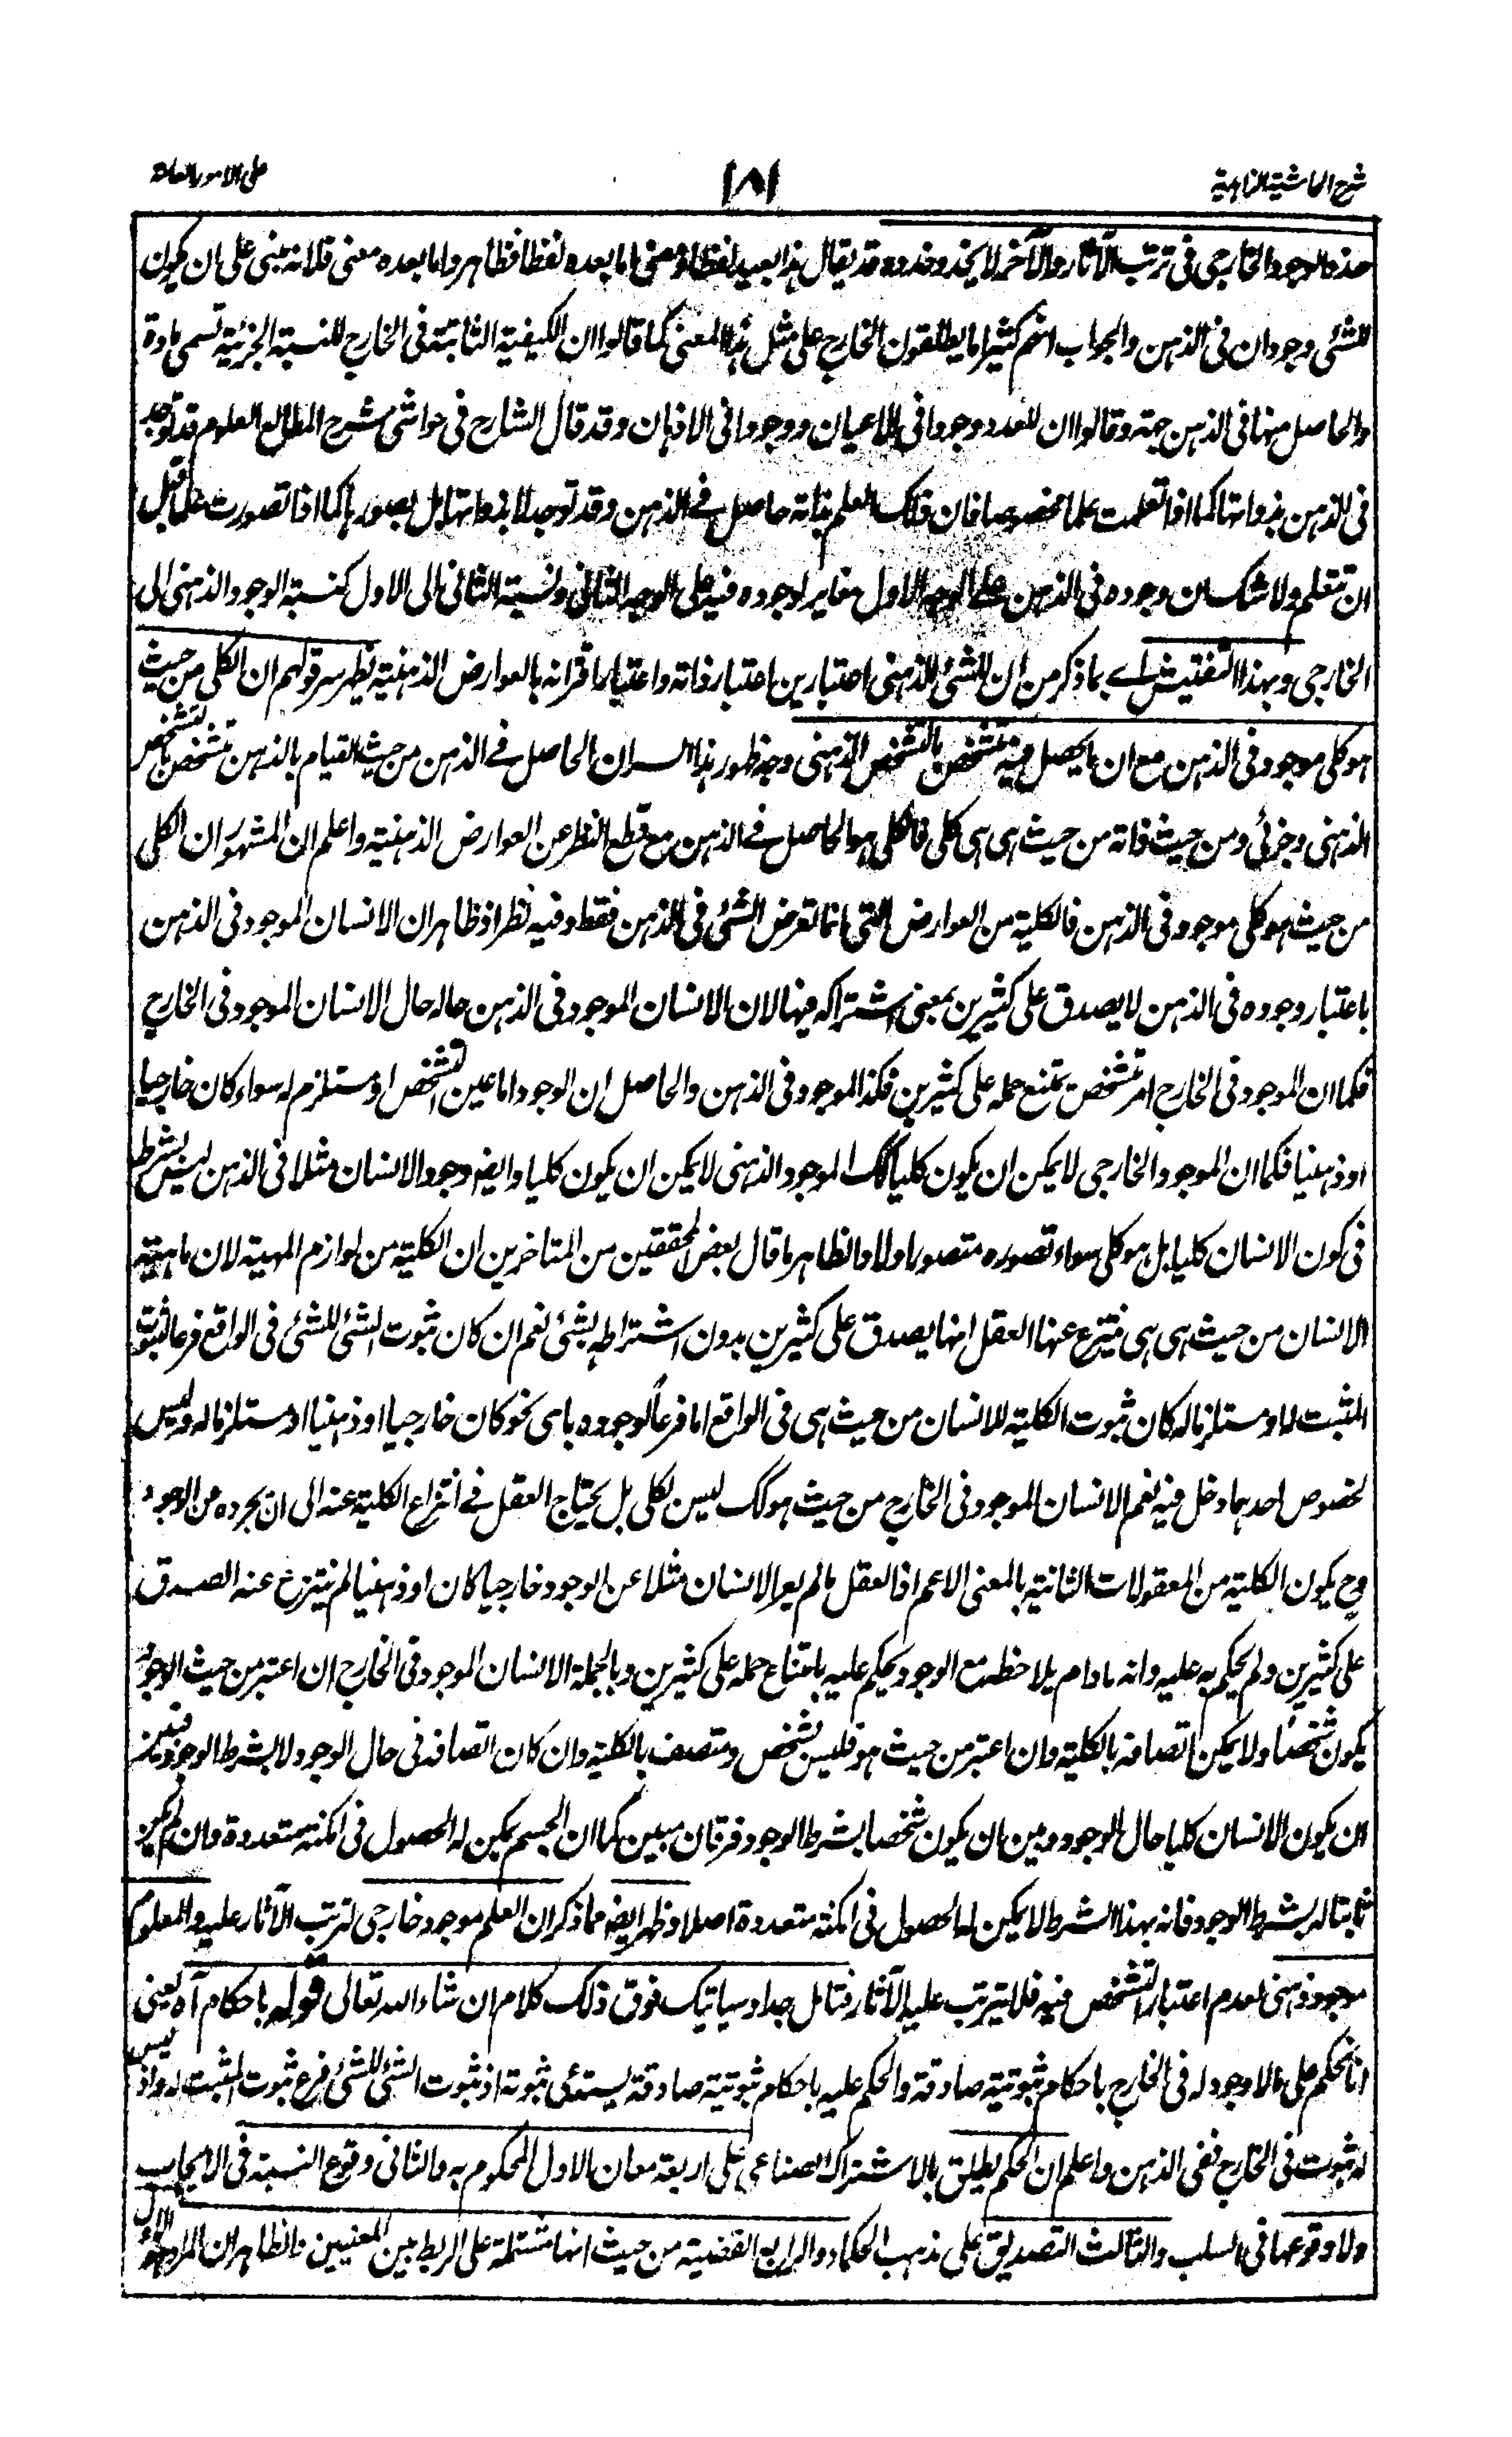 شرح الحاشية الزاهدية
١٨١
على الامور العامة
حذو الوجود الخارجي في ترتب الآثار والآخر لا يحذو حذوه وقد يقال هذا بعيد لفظا ومعنى اما بعده لفظا فظاهر واما بعده معنى فلانه مبنى على ان يكون
للشئ وجودان فى الذهن والجواب انهم كثيرا ما يطلقون الخارج على مثل هذا المعنى كما قالوا ان الكيفية الثابتة فى الخارج للنسبة الجزئية تسمى مادة
والحاصل منها فى الذهن جهة وقالوا ان للعدد وجودا فى الاعيان ووجودا فى الاذهان وقد قال الشارح فى حواشى شرح المطالع العلوم قد توجد
فى الذهن بذواتها كما اذا تعلمت علما مخصوصا فان ذلك العلم بذاته حاصل فے الذهن وقد توجد لا بذواتها بل بصورها كما اذا تصورت علما قبل
ان تتعلم ولا شك ان وجوده فى الذهن على الوجه الاول مغاير لوجوده فيه على الوجه الثانى ونسبة الثانى الى الاول كنسبة الوجود الذهنى الى
الخارجى وبهذا التفتيش اے بما ذكر من ان للشئ الذهنى اعتبارين اعتبار ذاته واعتبار اقترانه بالعوارض الذهنية يظهر سر قولهم ان الكلى من حيث
هو كلى موجود فى الذهن مع ان ما يحصل فيه متشخص بالتشخص الذهنى وجه ظهور هذا السر ان الحاصل فے الذهن من حيث القيام بالذهن متشخص بالتشخص
الذهنى وجزئى ومن حيث ذاته من حيث هى هى كلى فالكلى هو الحاصل فے الذهن مع قطع النظر عن العوارض الذهنية واعلم ان المشهور ان الكلى
من حيث هو كلى موجود فى الذهن فالكلية من العوارض التى انما تعرض الشئ فى الذهن فقط وفيه نظر اذ ظاهر ان الانسان الموجود فى الذهن
باعتبار وجوده فى الذهن لا يصدق على كثيرين بمعنى اشتراكه فيها لان الانسان الموجود فى الذهن حاله حال الانسان الموجود فى الخارج
فكما ان الموجود فى الخارج امر متشخص يمتنع حمله على كثيرين فكذا الموجود فى الذهن والحاصل ان الوجود اما عين التشخص او مستلزم له سواء كان خارجيا
او ذهنيا فكما ان الموجود الخارجى لا يمكن ان يكون كليا كك الموجود الذهنى لا يمكن ان يكون كليا وايضا وجود الانسان مثلا فى الذهن ليس بشرط
فى كون الانسان كليا بل هو كلى سواء تصوره متصور او لا والظاهر ما قال بعض المحققين من المتاخرين ان الكلية من لوازم المهية لان ماهية
الانسان من حيث هى هى ينتزع عنها العقل انها يصدق على كثيرين بدون اشتراطه بشئ نعم ان كان ثبوت الشئ للشئ فى الواقع فرعا لثبوت
المثبت له او مستلزما له كان ثبوت الكلية للانسان من حيث هى فى الواقع اما فرعا لوجوده باى نحو كان خارجيا او ذهنيا او مستلزما له وليس
لخصوص احدهما دخل فيه نعم الانسان الموجود فى الخارج من حيث هو كك ليس بكلى بل يحتاج العقل فے انتزاع الكلية عنه الى ان يجرده من الوجود
وح يكون الكلية من المعقولات الثانية بالمعنى الاعم اذ العقل ما لم يعر الانسان مثلا عن الوجود خارجيا كان او ذهنيا لم ينتزع عنه الصدق
على كثيرين ولم يحكم به عليه وانه ما دام يلاحظه مع الوجود يحكم عليه بامتناع حمله على كثيرين وبالجملة الانسان الموجود فى الخارج ان اعتبر من حيث الوجود
يكون شخصا ولا يمكن اتصافه بالكلية وان اعتبر من حيث هو فليس بشخص ومتصف بالكلية وان كان اتصافه فى حال الوجود لا بشرط الوجود وبين
ان يكون الانسان كليا حال الوجود وبين ان يكون شخصا بشرط الوجود فرقان مبين كما ان الجسم يمكن له الحصول فى امكنة متعددة وان لم يكن
ثابتا له بشرط الوجود فانه بهذا الشرط لا يمكن له الحصول فى امكنة متعددة اصلا وظهر ايضا مما ذكر ان العلم موجود خارجى لترتب الآثار عليه والمعلوم
موجود ذهنى لعدم اعتبار التشخص فيه فلا يترتب عليه الآثار فتامل جدا وسياتيك فوق ذلك كلام ان شاء الله تعالى قوله باحكام آه يعنى
انا نحكم على ما لا وجود له فى الخارج باحكام ثبوتية صادقة والحكم عليه باحكام ثبوتية صادقة يستدعى ثبوته اذ ثبوت الشئ للشئ فرع ثبوت المثبت له واذ ليس
له ثبوت فى الخارج ففى الذهن واعلم ان الحكم يطلق بالاشتراك الصناعى على اربعة معان الاول المحكوم به والثانى وقوع النسبة فى الايجاب
ولا وقوعها فى السلب والثالث التصديق على مذهب الحكماء والرابع القضية من حيث انها مشتملة على الربط بين المعنيين والظاهر ان المراد هو الاول